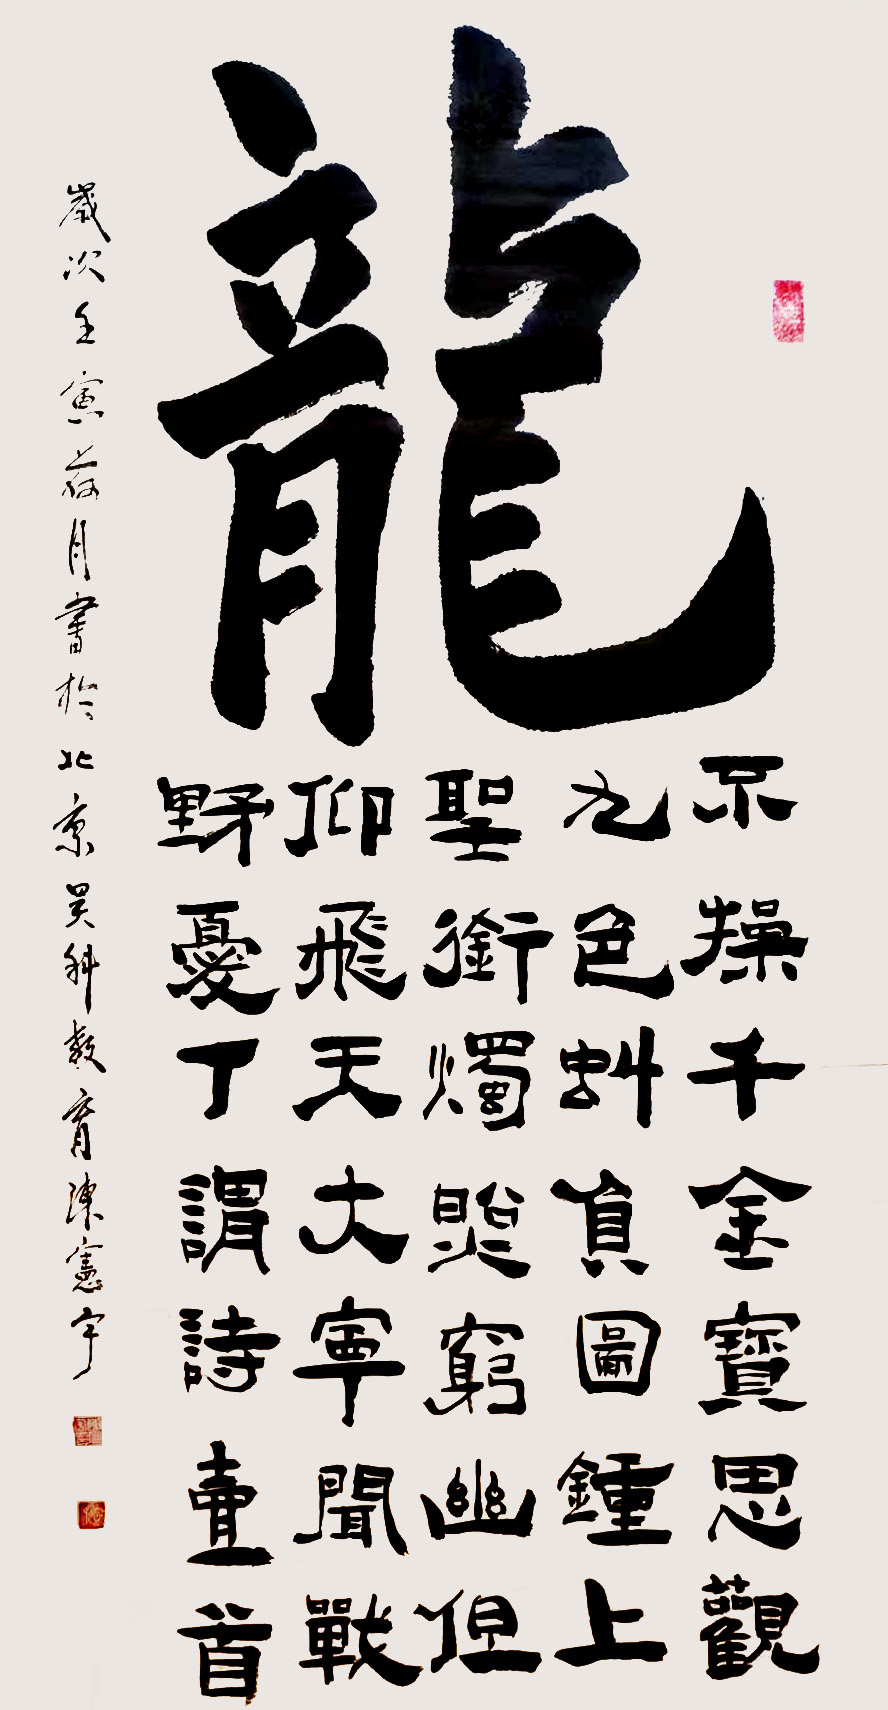 龍
不操千金寶思觀
九色虯真圖鍾上
聖銜燭照窮幽但
仰飛天大寧聞戰
野憂丁謂詩壹首
歲次壬寅荷月書於北京昊科教育陳憲宇